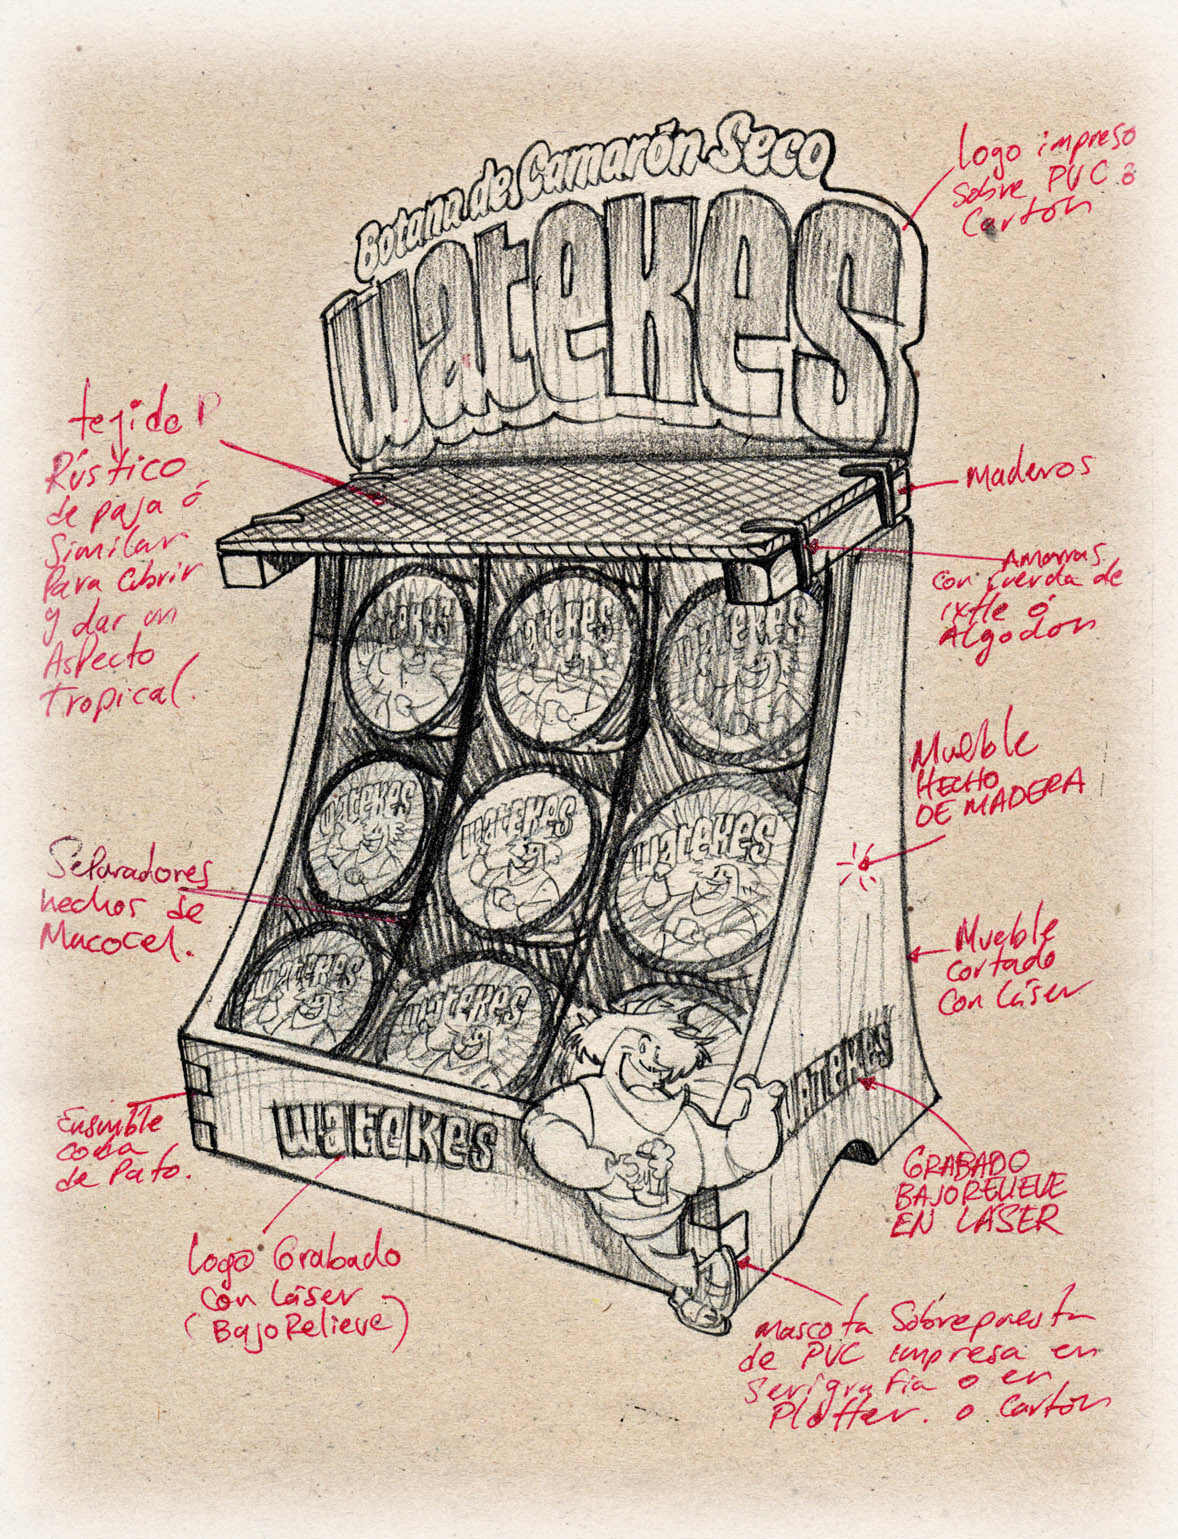 Botana de Camarón Seco
Watekes
logo impreso
sobre PVC ó
Cartón
tejido
Rústico
de paja ó
Similar
Para Cubrir
y dar un
Aspecto
Tropical.
Maderos
Amarras
con cuerda de
ixtle ó
Algodon
Mueble
HECHO
DE MADERA
Separadores
hechos de
Macocel.
Mueble
cortado
Con Láser
watekes
watekes
watekes
watekes
watekes
watekes
watekes
watekes
watekes
watekes
Ensamble
cola
de Pato.
GRABADO
BAJORELIEVE
EN LÁSER
logo Grabado
con Láser
(BajoRelieve)
Mascota Sobrepuesta
de PVC impresa en
Serigrafia o en
Plotter. o Cartón